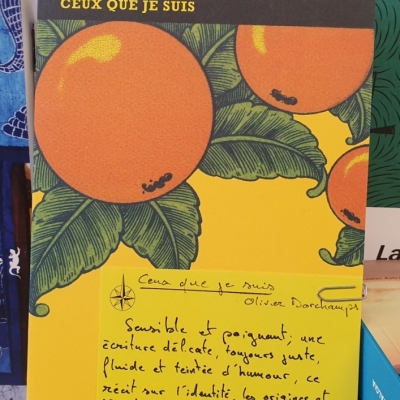 CEUX QUE JE SUIS
Ceux que je suis
Olivier Dorchamps
Sensible et poignant, une
écriture délicate, toujours juste,
fluide et teintée d'humour, ce
récit sur l'identité, les origines et
La